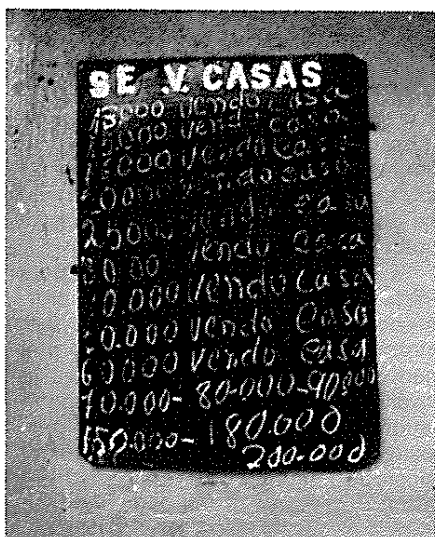 SE .V. CASAS
13000 vendo casa
15000 vendo casa
18000 vendo casa
0000 vendo casa
25000 vendo casa
3000 vendo casa
0.000 vendo casa
0.000 vendo casa
60000 vendo casa
70.000- 80.000-90000
150.000- 180.000
200.000